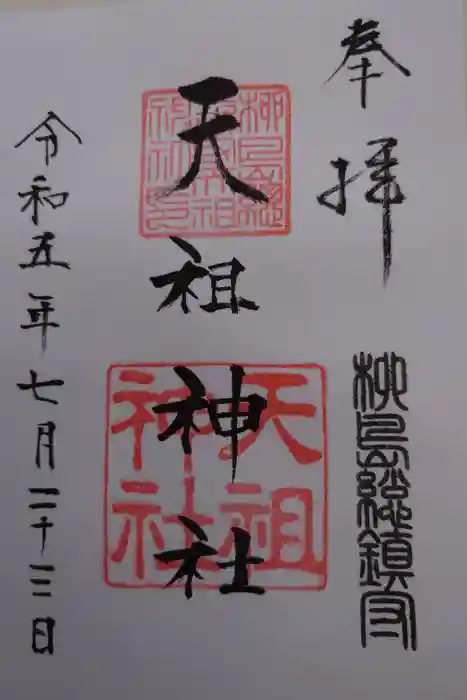 奉拝
柳島總鎮守
天祖神社
柳島總鎮守天祖神社印
天祖神社
令和五年七月二十三日